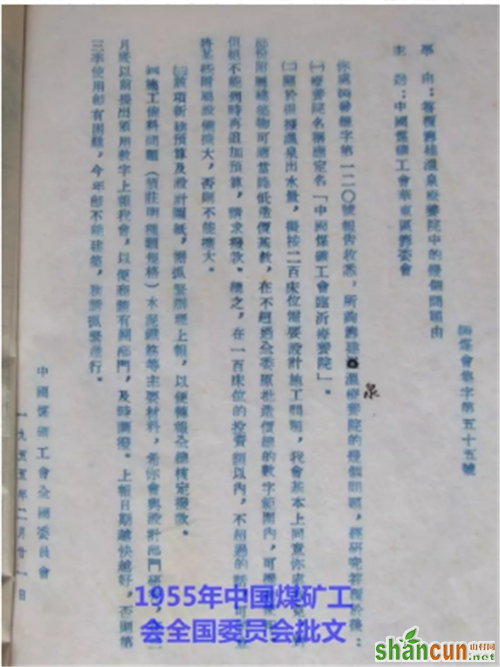 (55)煤會築字第五十五號
事由：答覆興建溫泉療養院中的幾個問題由
主送：中國煤礦工會華東區籌委會
你處(55)發總字第一二〇號報告收悉，所詢興建溫泉療養院的幾個問題，經研究答覆於後：
(一)療養院名稱應定名「中國煤礦工會臨沂療養院」。
(二)關於根據溫泉出水量，擬按二百床位需要設計施工問題，我會基本上同意你處意見
附屬建築物可適當降低造價基數，在不超過全委原批造價總的數字範圍內，可
但絕不能同時再追加預算，請求撥款。總之，在一百床位的投資額以內，不超過的話
建某些附屬設備擴大，否則不能擴大。
(三)該項新缺預算及設計圖紙，上報，以便轉報全總核定撥款。
(四)施工備料問題（須註明種類規格）水泥鋼鐵等主要材料，希你會與設計部門研究
月底以前提出須用數字上報我會，以便商請有關部門，及時調撥。上報日期越快越好，否則第
三季使用都有困難，今年都不能建築，執行。
中國煤礦工會全國委員會
一九五五年二月廿一日
1955年中国煤矿工
会全国委员会批文
shancun.net
山村网